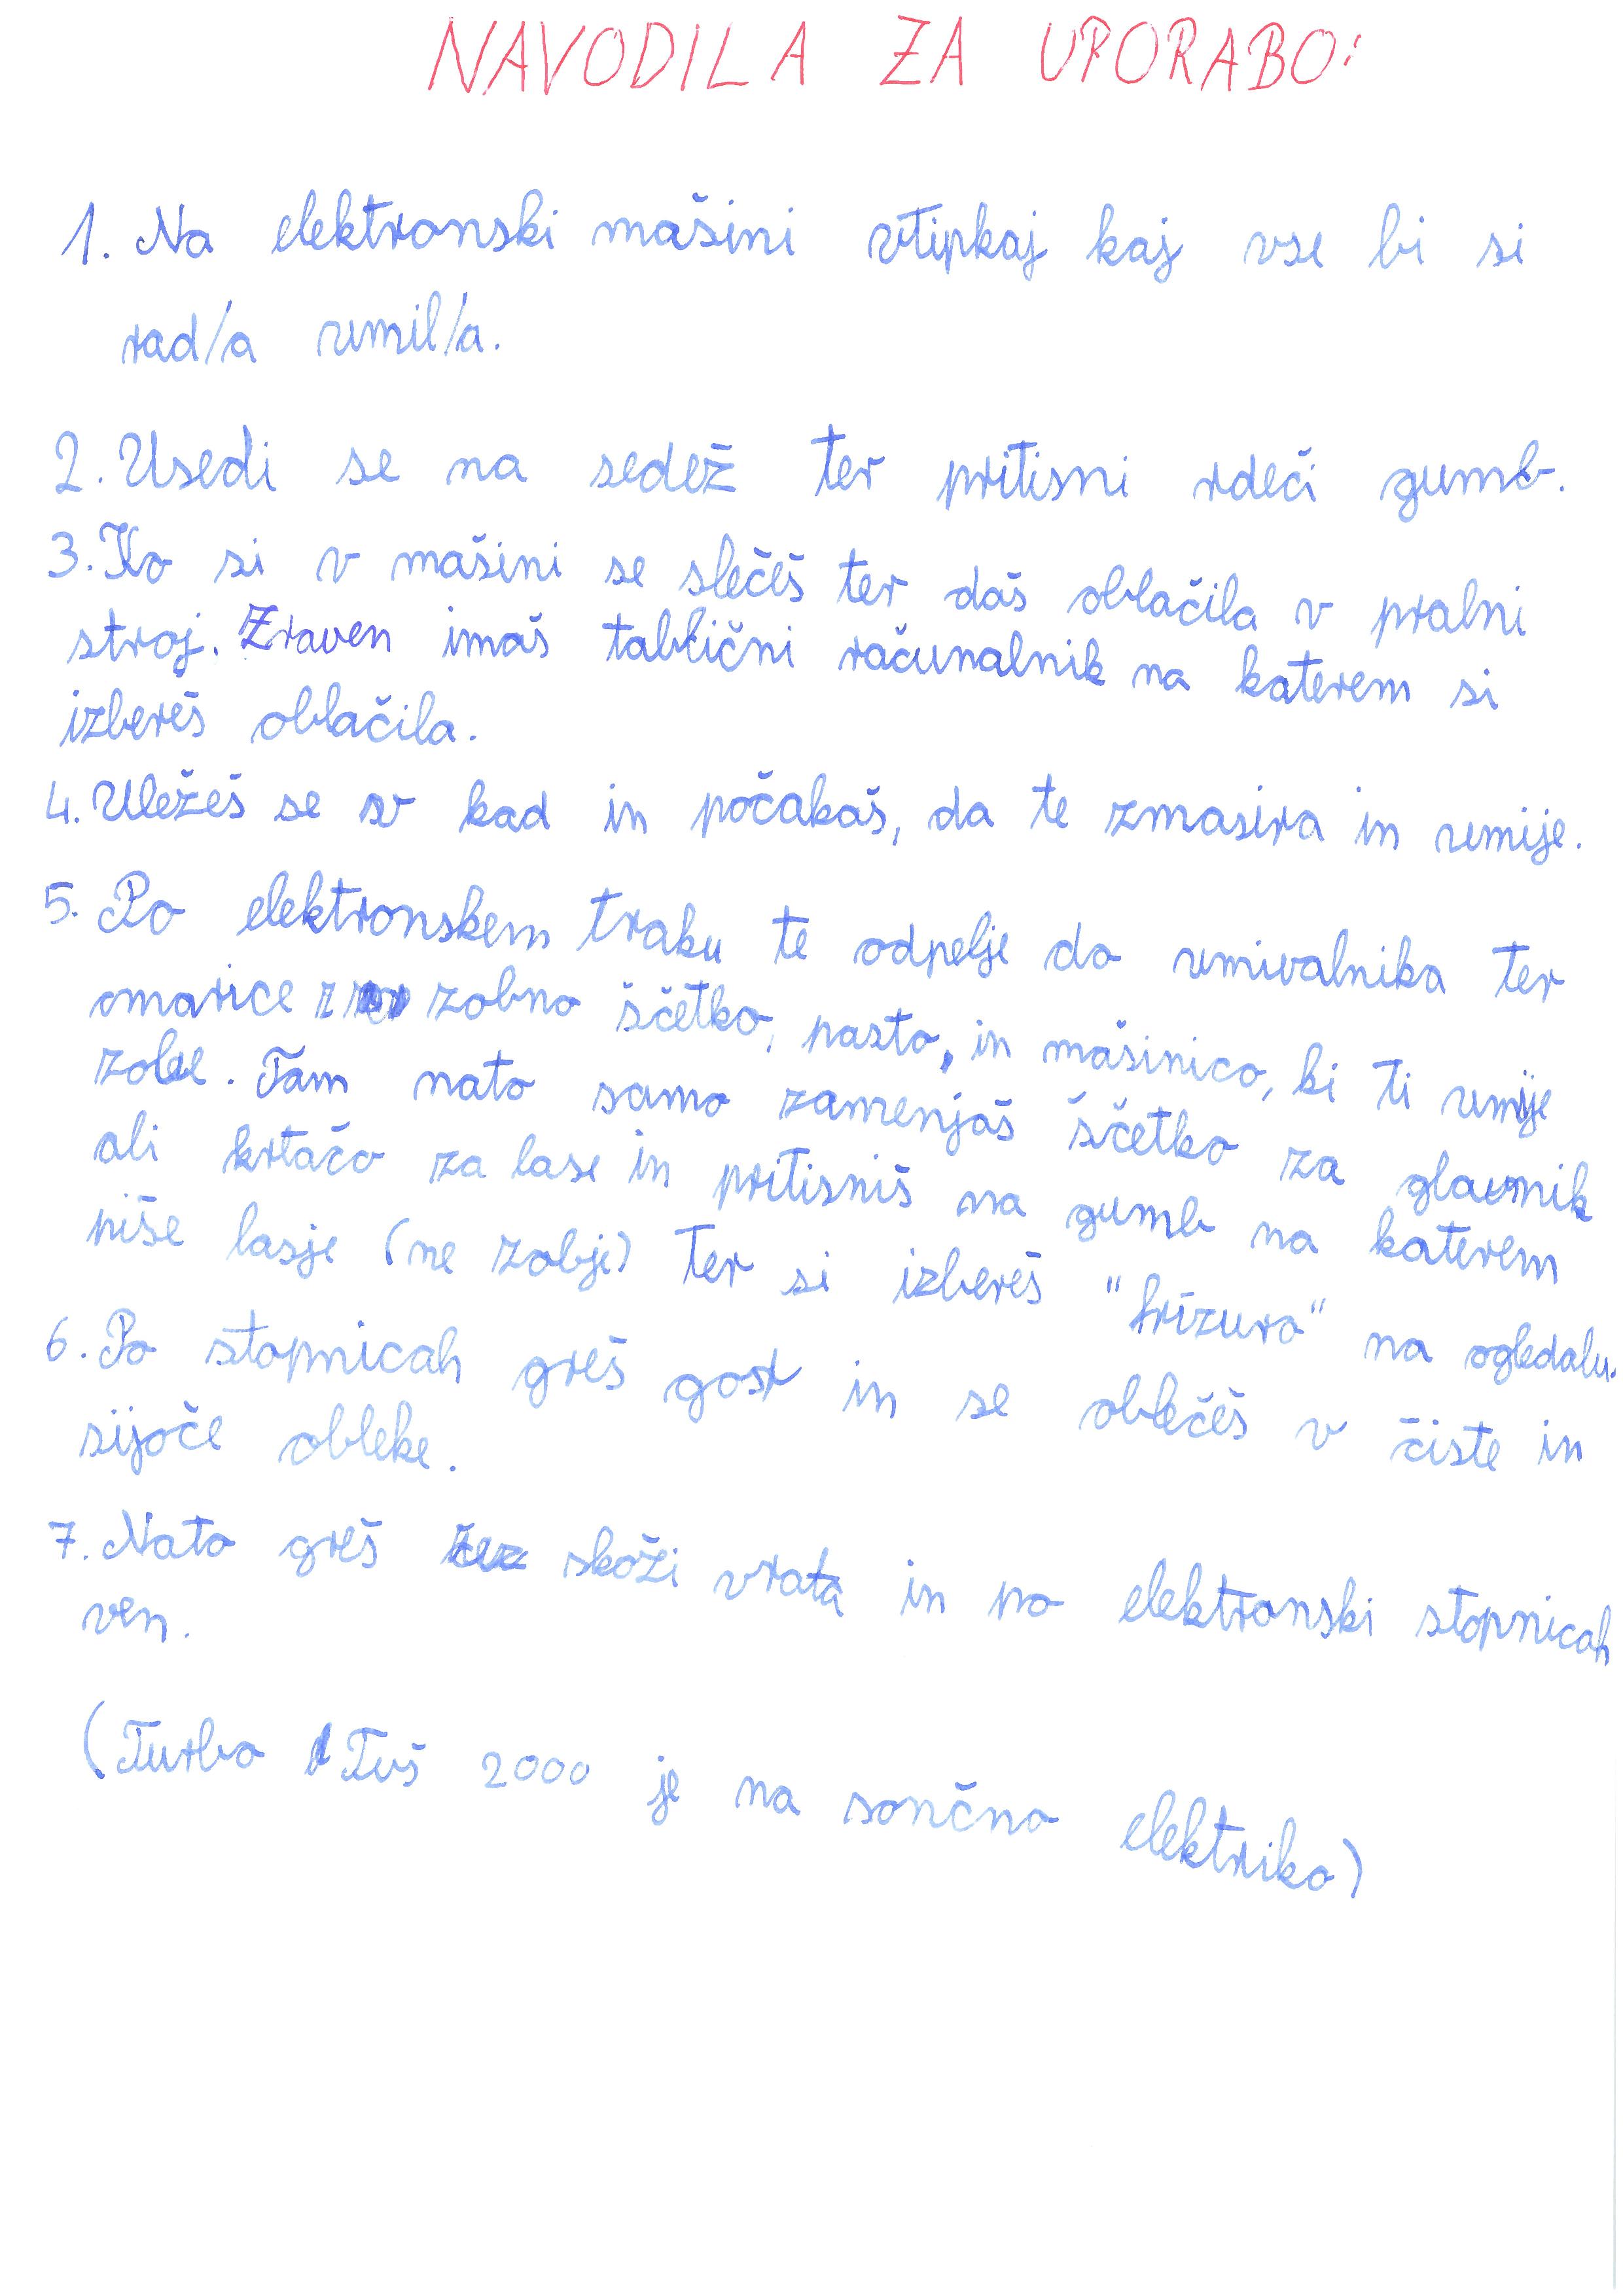 NAVODILA ZA UPORABO:
1. Na elektronski mašini vtipkaj kaj vse bi si
rad/a umil/a.
2. Usedi se na sedež ter pritisni rdeči gumb.
3. Ko si v mašini se slečeš ter daš oblačila v pralni
stroj. Zraven imaš tablični računalnik na katerem si
izbereš oblačila.
4. Uležeš se v kad in počakaš, da te zmasira in umije.
5. Po elektronskem traku te odpelje do umivalnika ter
omarice z zobno ščetko, pasto, in mašinico, ki ti umije
zobe. Tam nato samo zamenjaš ščetko za glavnik
ali krtačo za lase in pritisniš na gumb na katerem
piše lasje (ne zobje) ter si izbereš "frizuro" na ogledalu.
6. Po stopnicah greš gost in se oblečeš v čiste in
sijoče obleke.
7. Nato greš skoži vrata in po elektronski stopnicah
ven.
(Turbo Tuš 2000 je na sončno elektriko)